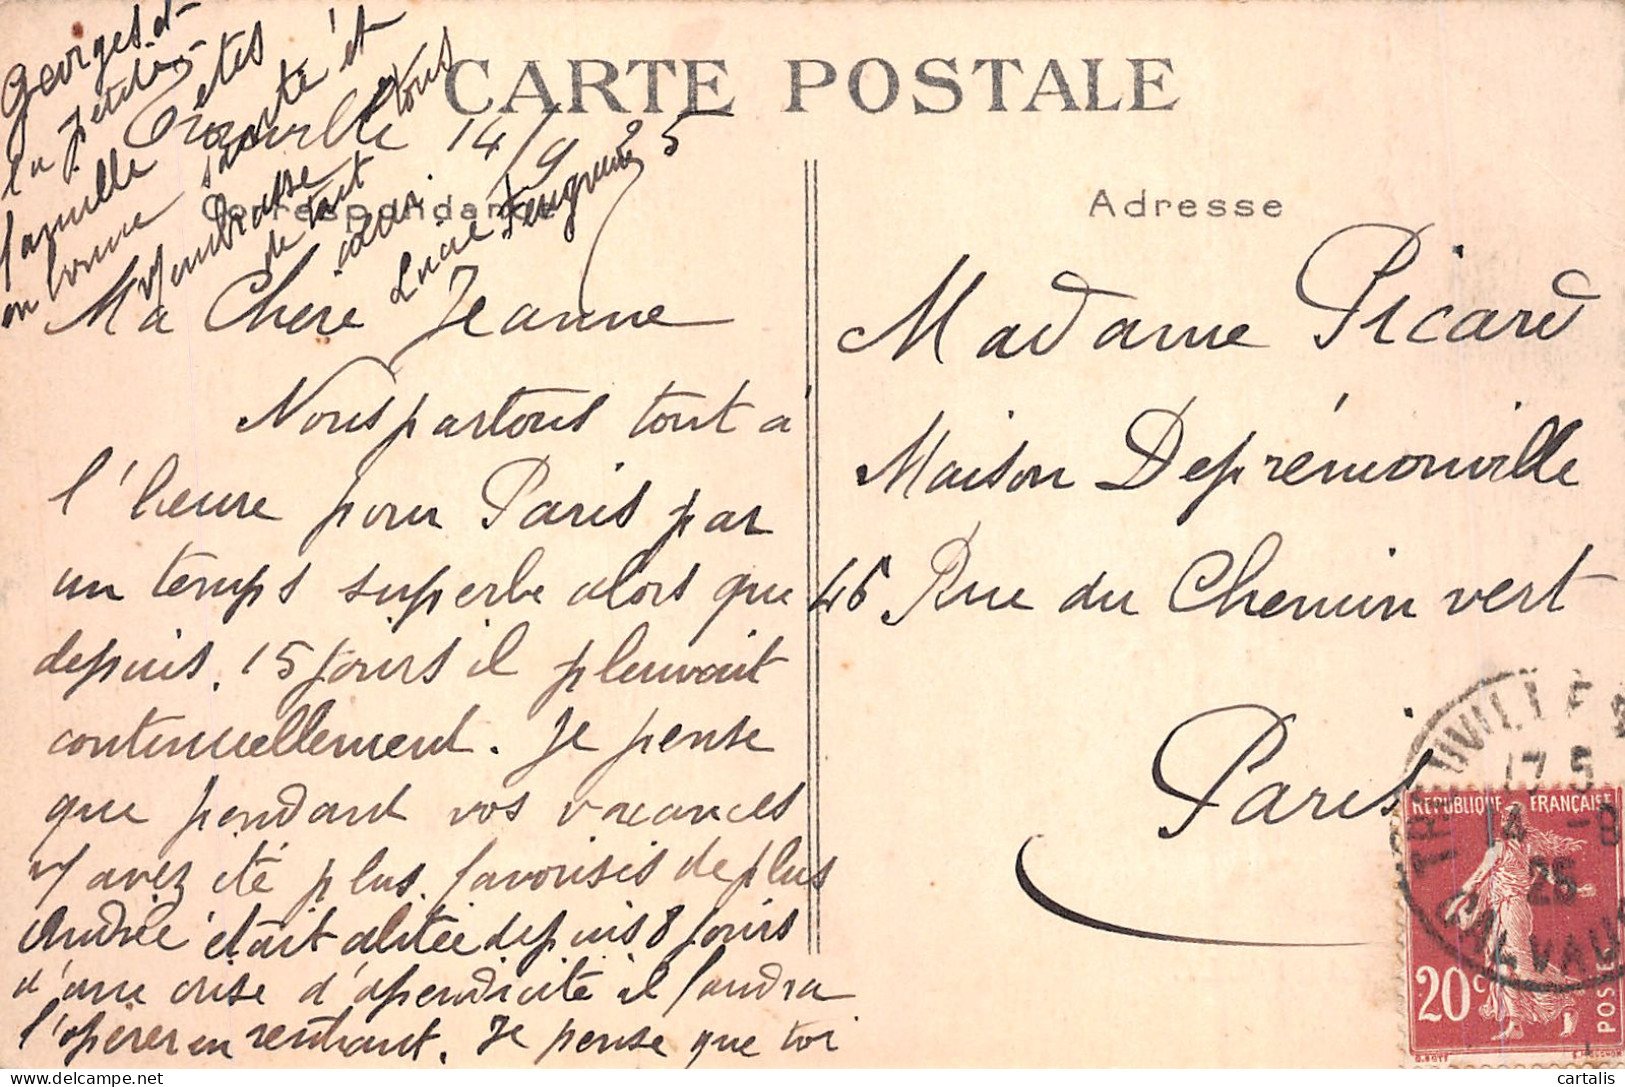 CARTE POSTALE
Trouville 14/9 25
Correspondance
Ma Chère Jeanne
Nous partons tout à
l'heure pour Paris par
un temps superbe alors que
depuis. 15 jours il pleuvait
continuellement. Je pense
que pendant vos vacances
avez été plus favorisés de plus
Andrée était alitée depuis 8 jours
d'une crise d'apendicite il faudra
l'opérer en rentrant. Je pense que toi
Georges et
la petite
famille êtes
en bonne santé et
t'embrasse tous
de tout
cœur.
Lucie
Adresse
Madame Picard
Maison Deprémonville
46 Rue du Chemin vert
Paris
TROUVILLE
17 5
14 -9
25
CALVADOS
REPUBLIQUE FRANÇAISE
20c
POSTES
cartalis